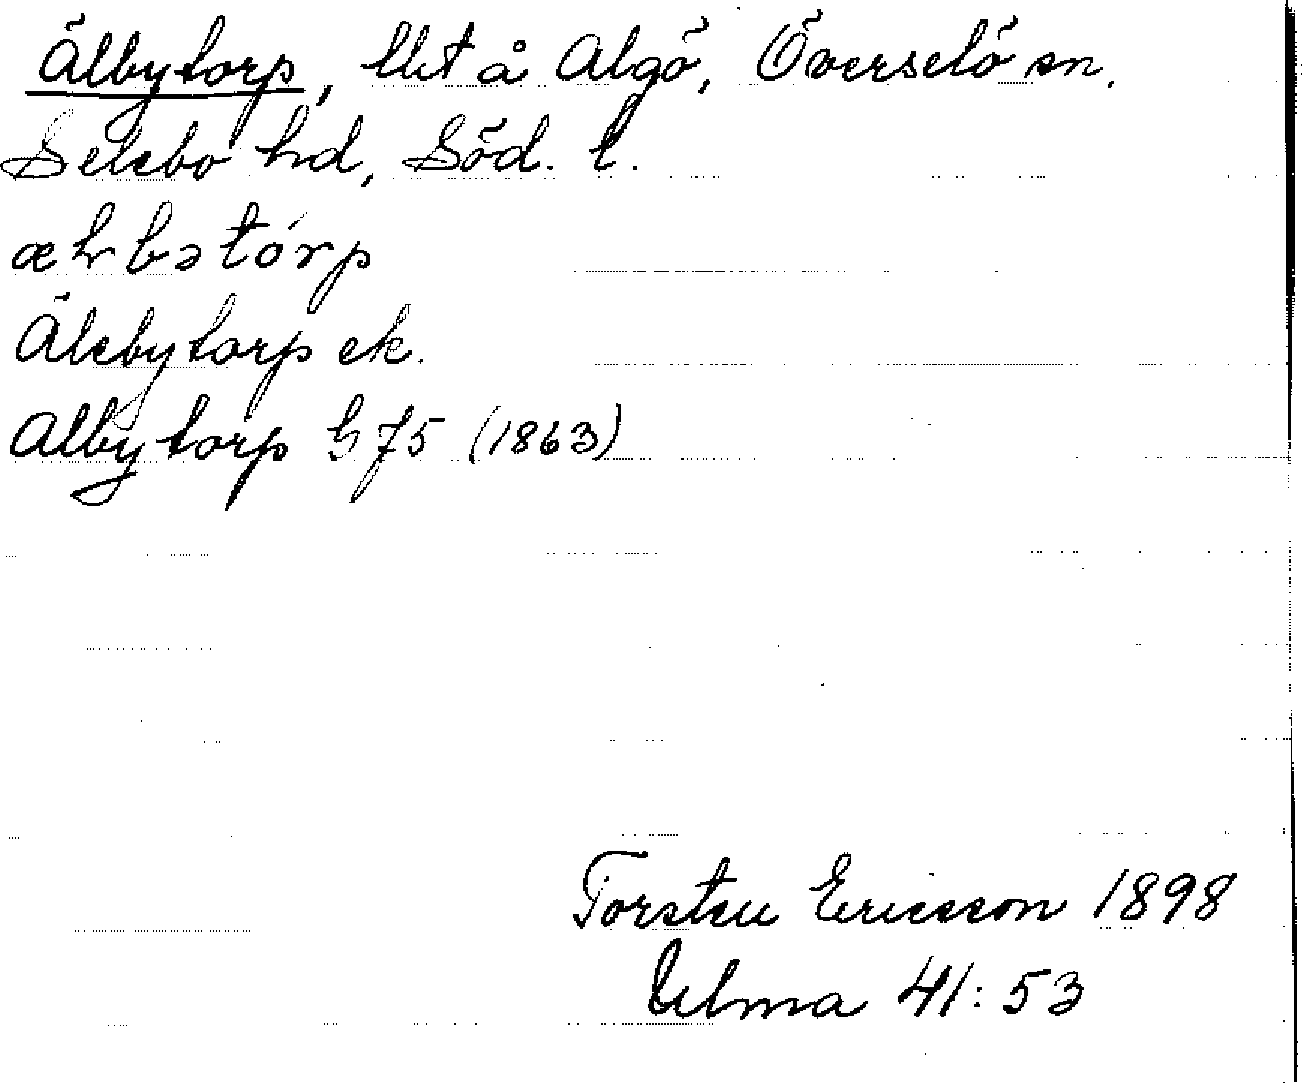 Älbytorp, llit å Algö, Överselö sn.
Selebo hd, Söd. l.
Älebytorp ek.
Albytorp G 75 (1863)
Torsten Ericsson 1898
Ulma 41:53